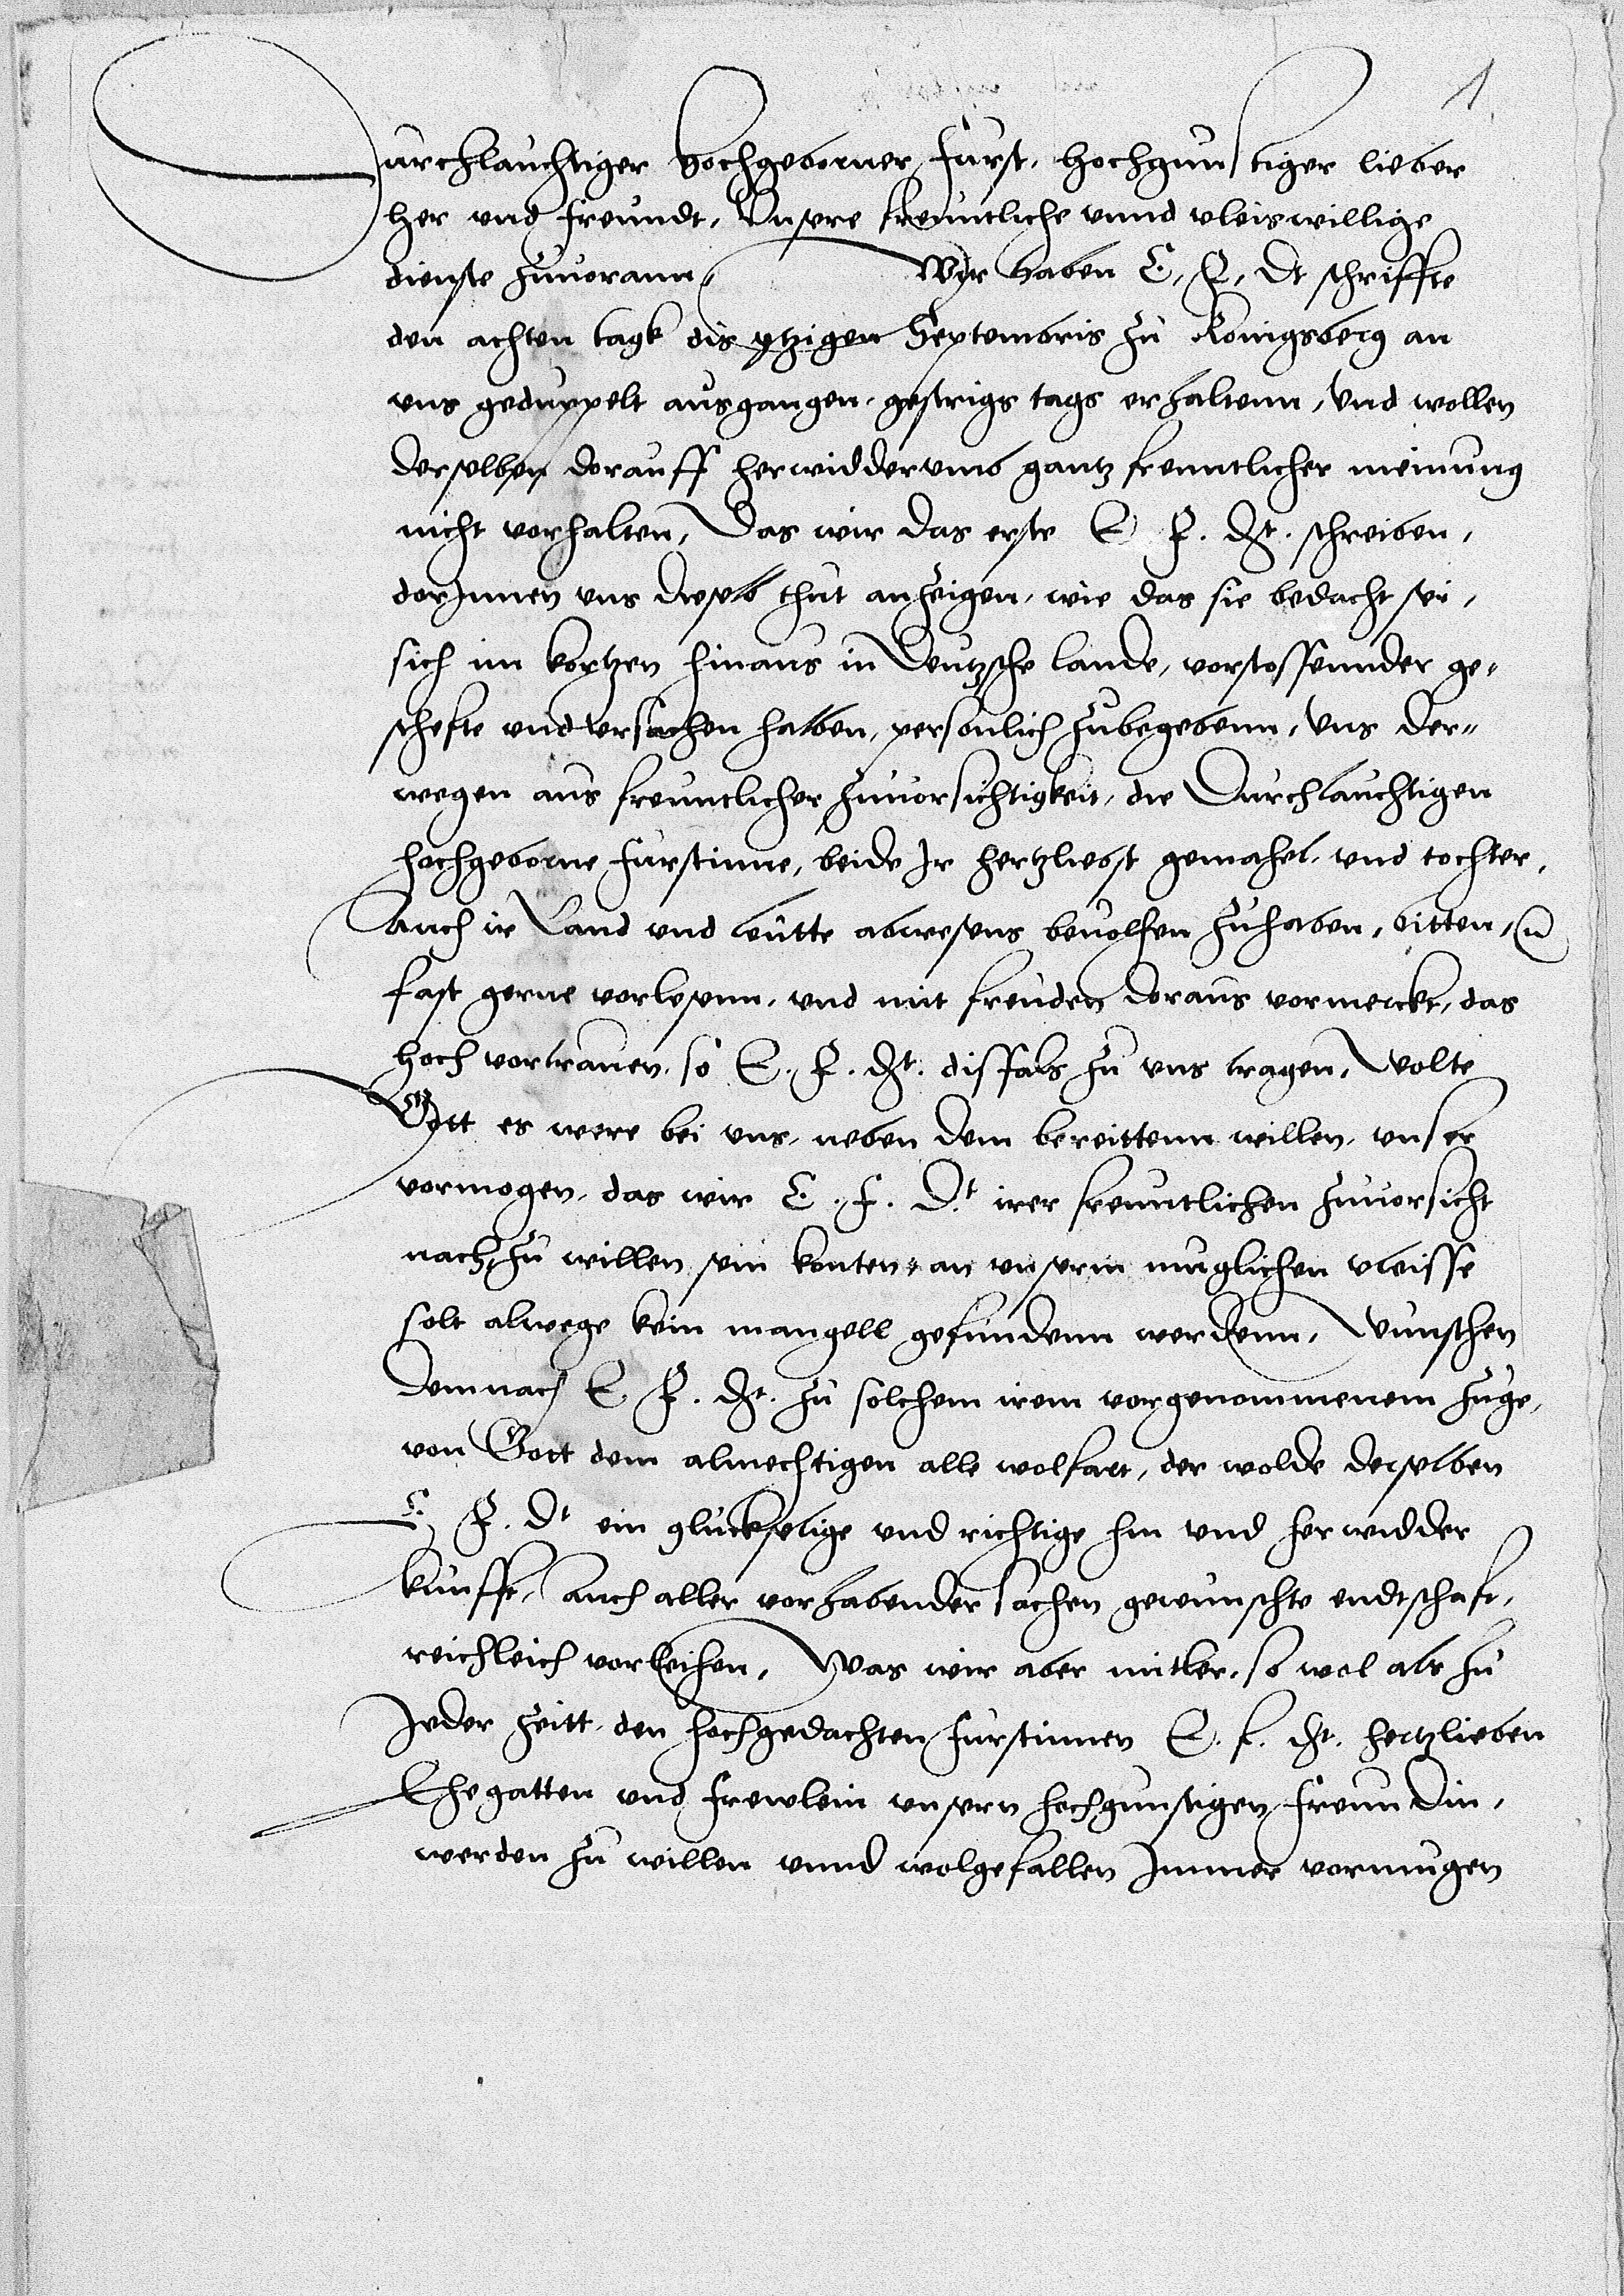 1
Durchlauchtiger Hochgeborner Furst, Hochgunstiger lieber
her vnd freundt, Vnsere freuntliche vnnd vleiswillige
dienste zuuorann, Wyr haben E, F, Dt schriffte
den achten tagk dis ytzigen Septembris zu Konigsberg an
vns geduppelt ausgangen, gestrigs tags erhaltenn, Vnd wollen
derselben dorauff herwidderumb gantz freuntlicher meinung
nicht vorhalten, Das wir das erste E F. Dt. schreiben,
dorJnnen vns dieselb thut anzeigen, wie das sie bedacht sei,
sich im kortzen hinaus in Deutzsche lande, vorstossennder ge-
schefte vnd vrsachen halben, personlich zubegebenn, Vns der-
wegen aus freuntlicher zuuorsichtigkeit, die Durchlauchtigen
hochgeborne furstinne, beide Jr hertzliebst gemahel, vnd tochter,
Auch ir Land vnd leutte abwesens beuolhen zuhaben, bitten,
fast gerne vorlesenn, vnd mit freuden doraus vormerckt, das
hoch vortrauen, so E. F. Dt. disfals zu vns tragen, Wolte
Gott es were bei vns, neben dem bereittenn willen, vnser
vormogen, das wir E. F. Dt irer freuntlichen zuuorsicht
nach, zu willen sein konten, an vnserm muglichen vleisse
solt alwege kein mangell gefundenn werdenn, Wunschen
demnach E. F. Dt. zu solchem irem vorgenommenem zuge,
von Gott dem almechtigen alle wolfart, der wolde derselben
E, F. Dt ein gluckselige vnd richtige hin vnd herwidder
kunfft, Auch aller vorhabender sachen gewunschte endtschaft,
reichleich vorleihen, Was wir aber mitler, so wol als zu
Jeder zeitt, den hochgedachten furstinnen E. f. Dt. hertzlieben
Ehegatten vnd frewlein vnsern hochgunstigen freundin,
werden zu willen vnnd wolgefallen Jmmer vormugen